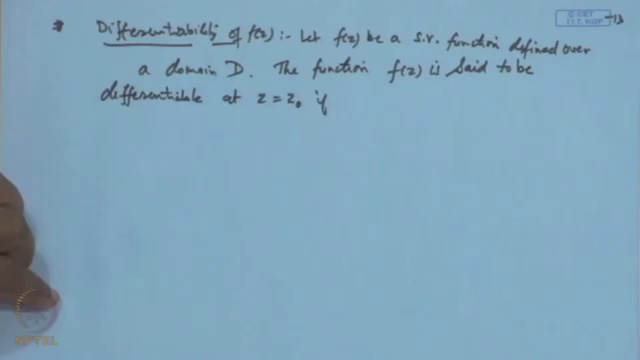 * Differentiability of f(z) :- Let f(z) be a s.v. function defined over
a domain D. The function f(z) is said to be
differentiable at z = z₀ if
© CET
I.I.T. KGP
NPTEL